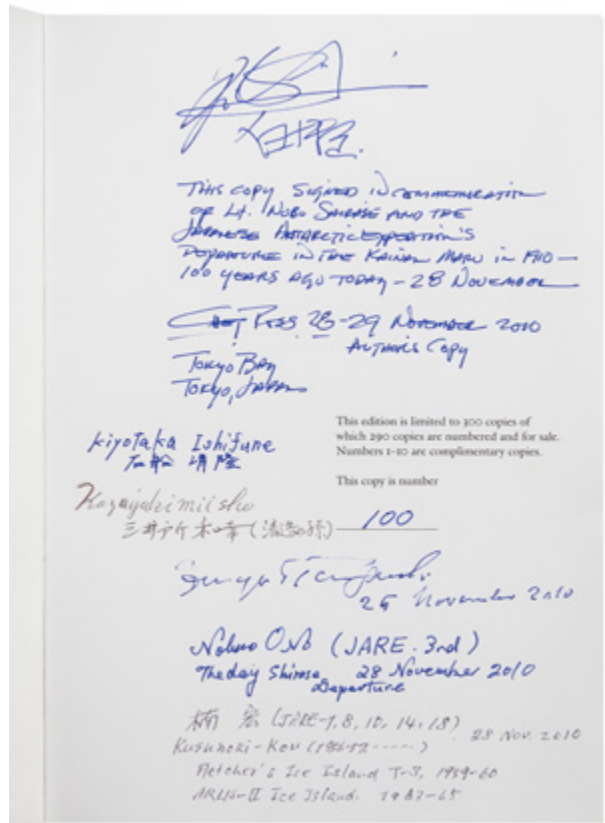 THIS COPY SIGNED IN COMMEMORATION
OF LT. NOBU SHIRASE AND THE
JAPANESE ANTARCTIC EXPEDITION'S
DEPARTURE IN THE KAINAN MARU IN 1910 —
100 YEARS AGO TODAY — 28 NOVEMBER
28-29 NOVEMBER 2010
AUTHOR'S COPY
TOKYO BAY
TOKYO, JAPAN
This edition is limited to 300 copies of
which 290 copies are numbered and for sale.
Numbers 1-10 are complimentary copies.
This copy is number
100
Kiyotaka Ishifune
石船 清隆
Kazuyuki miisho
三井所 和幸
November 2010
Nobuo ONO (JARE. 3rd)
The day Shirase 28 November 2010
Departure
楠 宏 (JARE-1, 8, 10, 14, 18)
28 Nov. 2010
Kusunoki-Kou
Fletcher's Ice Island T-3, 1959-60
ARLIS-II Ice Island.